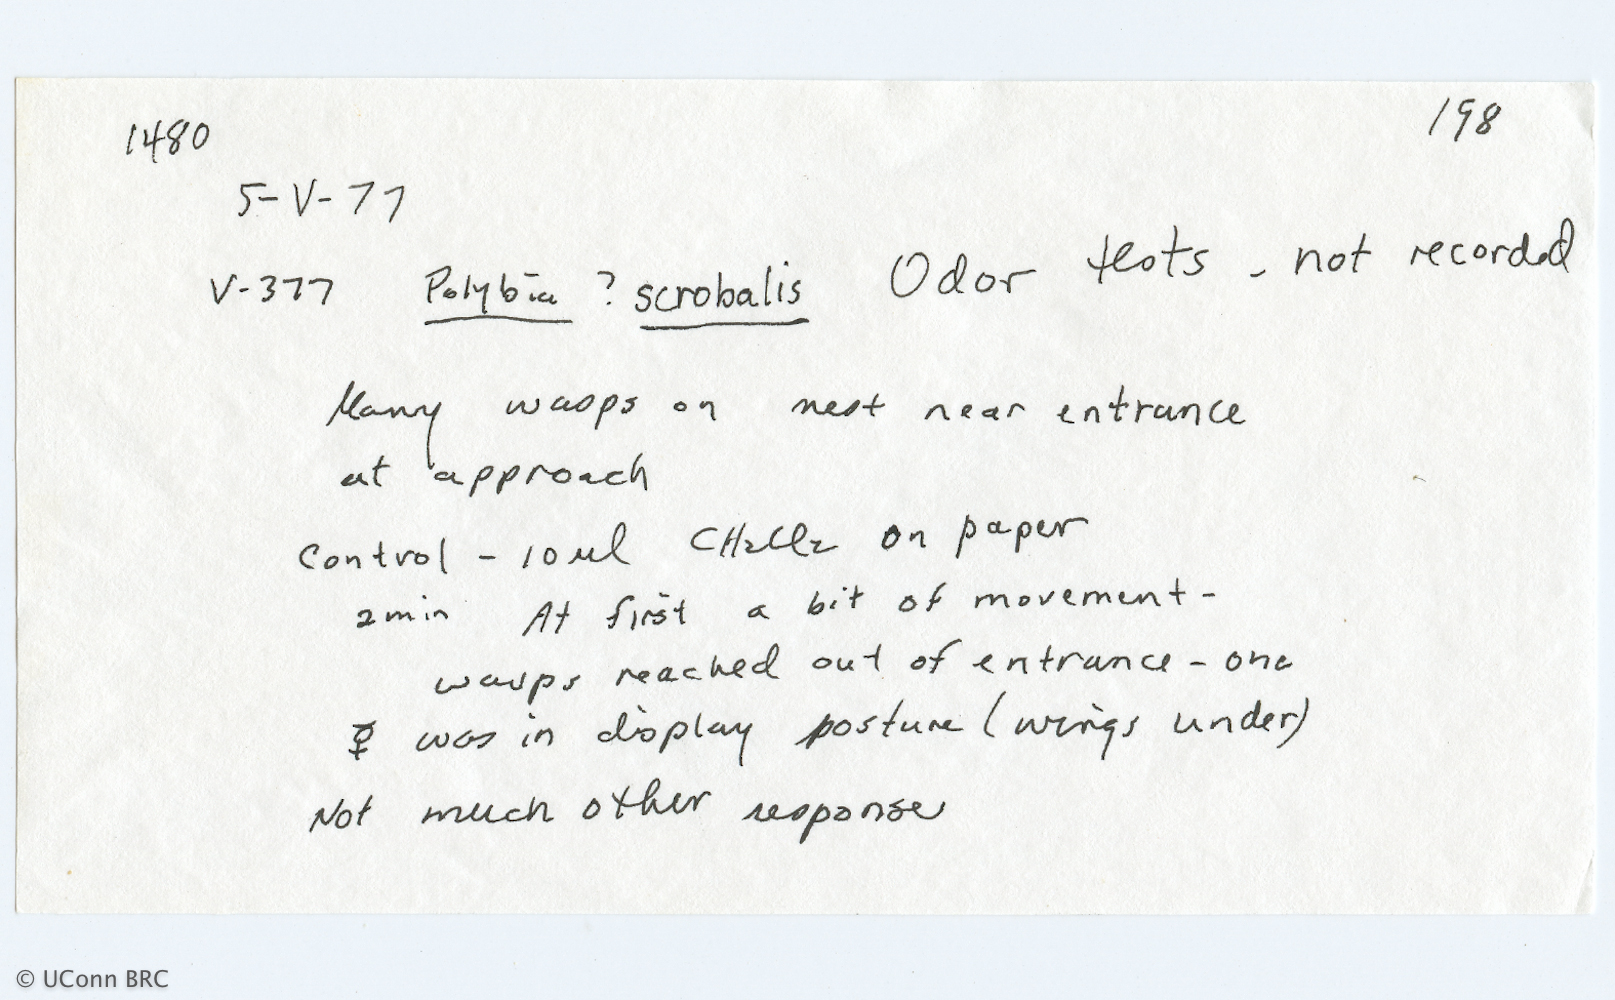 1480 198
5-V-77
V-377 Polybia ? scrobalis Odor tests - not recorded
Many wasps on nest near entrance
at approach
Control - 10 µl CH2Cl2 on paper
2 min At first a bit of movement -
wasps reached out of entrance - one
☿ was in display posture (wings under)
Not much other response
© UConn BRC